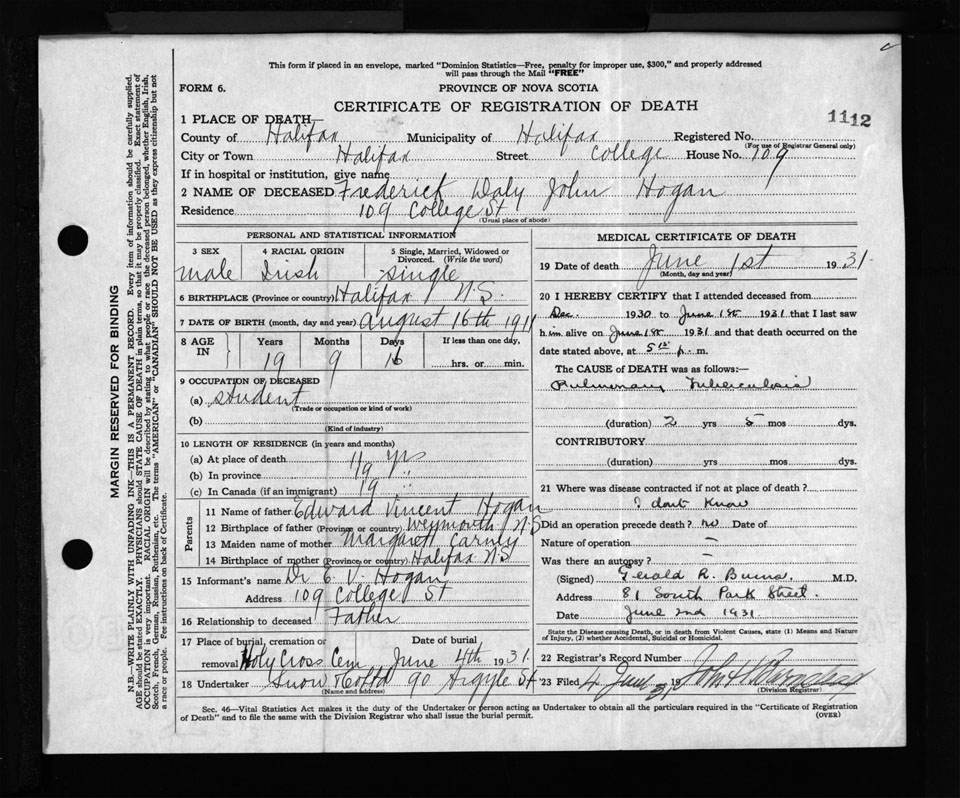 This form if placed in an envelope, marked "Dominion Statistics—Free, penalty for improper use, $300," and properly addressed
will pass through the Mail "FREE"
FORM 6.
PROVINCE OF NOVA SCOTIA
CERTIFICATE OF REGISTRATION OF DEATH
1112
1 PLACE OF DEATH—
County of Halifax Municipality of Halifax Registered No.
(For use of Registrar General only)
City or Town Halifax Street College House No. 109
If in hospital or institution, give name
2 NAME OF DECEASED Frederick Daly John Hogan
Residence 109 College St
(Usual place of abode)
PERSONAL AND STATISTICAL INFORMATION
3 SEX 4 RACIAL ORIGIN 5 Single, Married, Widowed or
Divorced. (Write the word)
male Irish single
6 BIRTHPLACE (Province or country) Halifax N.S.
7 DATE OF BIRTH (month, day and year) August 16th 1911
8 AGE IN Years Months Days If less than one day,
19 9 16 hrs. or min.
9 OCCUPATION OF DECEASED
(a) student
(Trade or occupation or kind of work)
(b)
(Kind of industry)
10 LENGTH OF RESIDENCE (in years and months)
(a) At place of death 19 yrs
(b) In province 19 "
(c) In Canada (if an immigrant)
Parents
11 Name of father Edward Vincent Hogan
12 Birthplace of father (Province or country) Weymouth N.S
13 Maiden name of mother Margarett Carney
14 Birthplace of mother (Province or country) Halifax N.S
15 Informant's name Dr E. V. Hogan
Address 109 College St
16 Relationship to deceased Father
17 Place of burial, cremation or Date of burial
removal Holy Cross Cem June 4th 1931.
18 Undertaker Snow & Co Ltd 90 Argyle St
(Name and address)
MEDICAL CERTIFICATE OF DEATH
19 Date of death June 1st 1931.
(Month, day and year)
20 I HEREBY CERTIFY that I attended deceased from
Dec. 1930 to June 1st 1931 that I last saw
him alive on June 1st 1931 and that death occurred on the
date stated above, at 5 p. m.
The CAUSE of DEATH was as follows:—
Pulmonary Tuberculosis
(duration) 2 yrs 5 mos dys.
CONTRIBUTORY
(duration) yrs mos dys.
21 Where was disease contracted if not at place of death?
I dont know
Did an operation precede death? no Date of
Nature of operation —
Was there an autopsy? —
(Signed) Gerald R. Burns. M.D.
Address 81 South Park Street.
Date June 2nd 1931.
State the Disease causing Death, or in death from Violent Causes, state (1) Means and Nature
of Injury, (2) whether Accidental, Suicidal or Homicidal.
22 Registrar's Record Number
23 Filed 4 June 1931
(Division Registrar)
Sec. 46—Vital Statistics Act makes it the duty of the Undertaker or person acting as Undertaker to obtain all the particulars required in the "Certificate of Registration
of Death" and to file the same with the Division Registrar who shall issue the burial permit. (OVER)
MARGIN RESERVED FOR BINDING
N.B.—WRITE PLAINLY WITH UNFADING INK—THIS IS A PERMANENT RECORD. Every item of information should be carefully supplied.
AGE should be stated EXACTLY. PHYSICIANS should STATE CAUSE OF DEATH in plain terms, so that it may be properly classified. Exact statement of
OCCUPATION is very important. RACIAL ORIGIN will be described by stating to what people or race the deceased person belonged, whether English, Irish,
Scotch, French, German, Russian, Ruthenian, etc. The terms "AMERICAN" or "CANADIAN" SHOULD NOT BE USED as they express citizenship but not
a race or people. Fee instructions on back of Certificate.